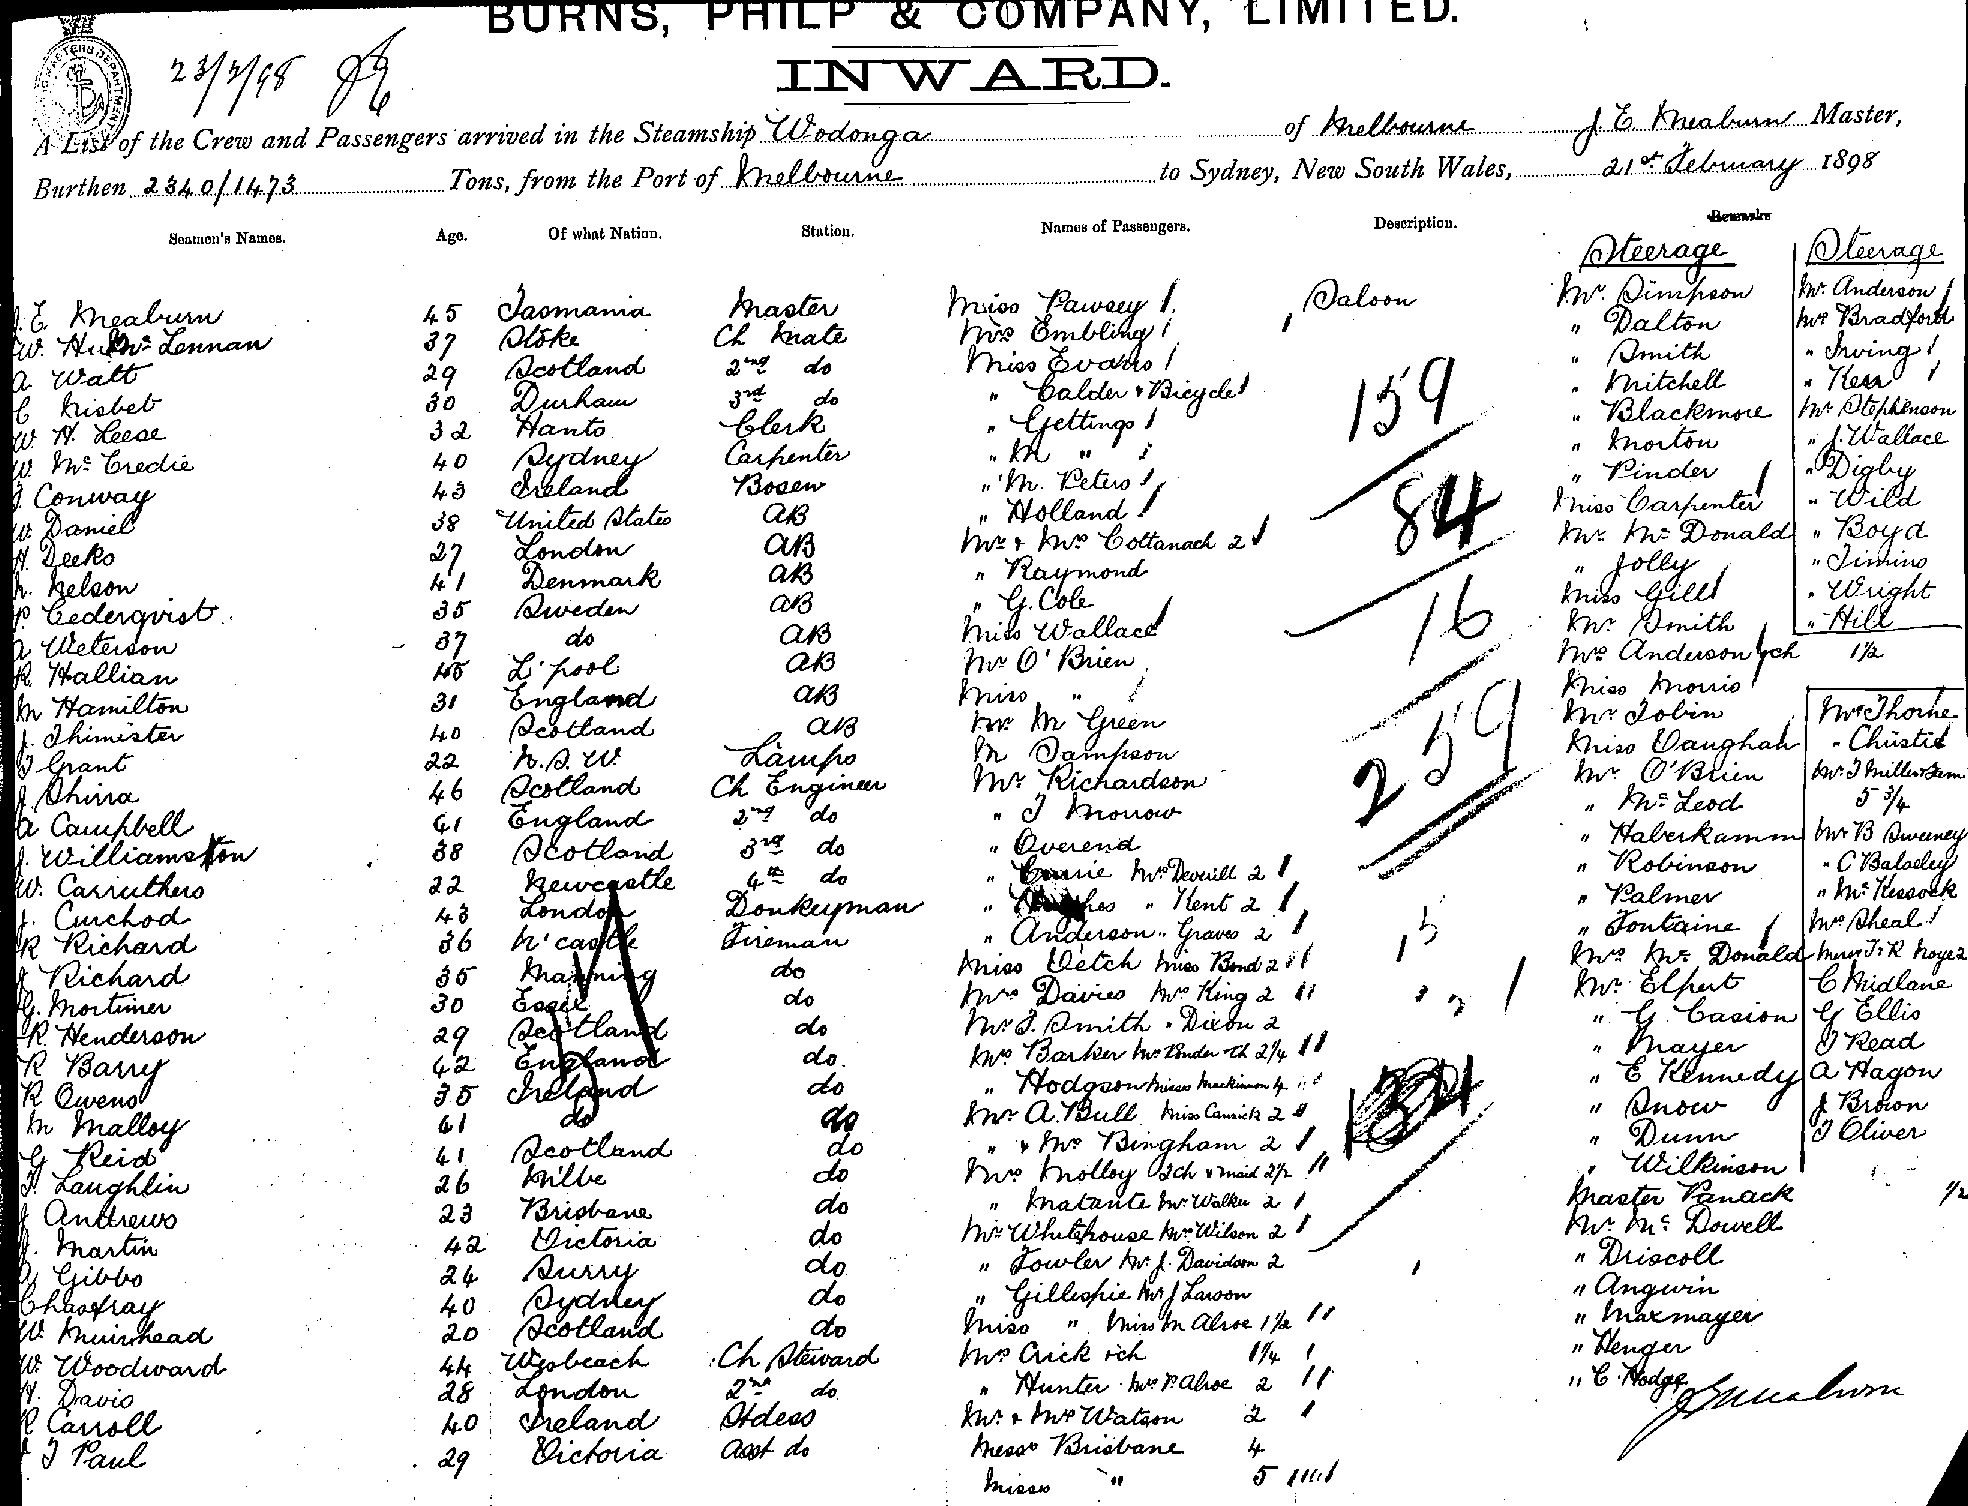 BURNS, PHILP & COMPANY, LIMITED.
INWARD.
23/2/98
A List of the Crew and Passengers arrived in the Steamship Wodonga of Melbourne J. E. Meaburn Master,
Burthen 2340/1473 Tons, from the Port of Melbourne to Sydney, New South Wales, 21st February 1898
Seamen's Names. Age. Of what Nation. Station. Names of Passengers. Description. Remarks
J. E. Meaburn 45 Tasmania Master
W. Mc Lennan 37 Stoke Ch Mate
A Watt 29 Scotland 2nd do
C Nisbet 30 Durham 3rd do
W. H. Leese 32 Hants Clerk
W. Mc Credie 40 Sydney Carpenter
J Conway 43 Ireland Bosen
W. Daniel 38 United States AB
H. Deeks 27 London AB
N. Nelson 41 Denmark AB
P. Cederqvist 35 Sweden AB
A Weterson 37 do AB
R. Hallian 45 L'pool AB
M Hamilton 31 England AB
J. Thimister 40 Scotland AB
J Grant 22 N. S. W. Lamps
J. Shirra 46 Scotland Ch Engineer
A Campbell 41 England 2nd do
J. Williamson 38 Scotland 3rd do
W. Carruthers 22 Newcastle 4th do
J. Curchod 43 London Donkeyman
R Richard 36 N'castle Fireman
J Richard 35 Manning do
G. Mortimer 30 Essex do
R. Henderson 29 Scotland do
R Barry 42 England do
R Owens 35 Ireland do
M Malloy 61 do do
G Reid 41 Scotland do
J. Laughlin 26 do
J Andrews 23 Brisbane do
J. Martin 42 Victoria do
Gibbs 24 Surry do
Chasfray 40 Sydney do
W. Muirhead 20 Scotland do
W. Woodward 44 Wisbeach Ch Steward
H. Davis 28 London 2nd do
R Carroll 40 Ireland Stdess
J Paul 29 Victoria Asst do
Miss Pawsey Saloon
Mrs Embling
Miss Evans
" Calder & Bicycle
" Gettings
" M "
" M. Peters
" Holland
Mr & Mrs Cottanach 2
" Raymond
" G. Cole
Miss Wallace
Mr O'Brien
Miss "
Mr M Green
M Sampson
Mr Richardson
" J Morrow
" Overend
" Currie Mrs Deverill 2
" Kent 2
" Anderson " Graves 2
Miss Vetch Miss Bond 2
Mrs Davies Mrs King 2
Mr J. Smith " Dixon 2
Mrs Barker Mrs Pinder & ch 2 1/4
" Hodgson Misses Mackinnon 4
Mr A. Bull Miss Carrick 2
" & Mrs Bingham 2
Mrs Molloy 2ch & maid 2 1/2
" Matante Mr Walker 2
Mr Whitehouse Mrs Wilson 2
" Fowler Mr J. Davidson 2
" Gillespie Mr J Larson
Miss " Miss M Alroe 1 1/2
Mrs Crick & ch 1 1/4
" Hunter Mrs P. Alroe 2
Mr & Mrs Watson 2
Messrs Brisbane 4
Misses " 5
159
84
16
259
15
Steerage
Mr. Simpson
" Dalton
" Smith
" Mitchell
" Blackmore
" Morton
" Pinder
Miss Carpenter
Mr Mc Donald
" Jolly
Miss Gill
Mr Smith
Mrs Anderson & ch 1 1/2
Miss Morris
Mr Tobin
Miss Vaughan
Mr O'Brien
" Mc Leod
" Haberkamm
" Robinson
" Palmer
" Fontaine
Mrs Mc Donald
Mr Elpert
" G. Casion
" Mayer
" E Kennedy
" Snow
" Dunn
" Wilkinson
Master Panack 1/2
Mr Mc Dowell
" Driscoll
" Angwin
" Maxmayer
" Henger
" C. Hodge
Steerage
Mr. Anderson
Mrs Bradford
" Irving
" Kerr
Mr Stephenson
" J. Wallace
" Digby
" Wild
" Boyd
" Timins
" Wright
" Hill
Mrs Thorne
" Christie
Mr J Miller & Fam
5 3/4
Mr B Sweeney
" C Balseley
" Mc Kissock
Mrs Sheal
Messrs J & R Noye 2
C Midlane
G Ellis
J Read
A Hagon
J Brown
J Oliver
J E Meaburn